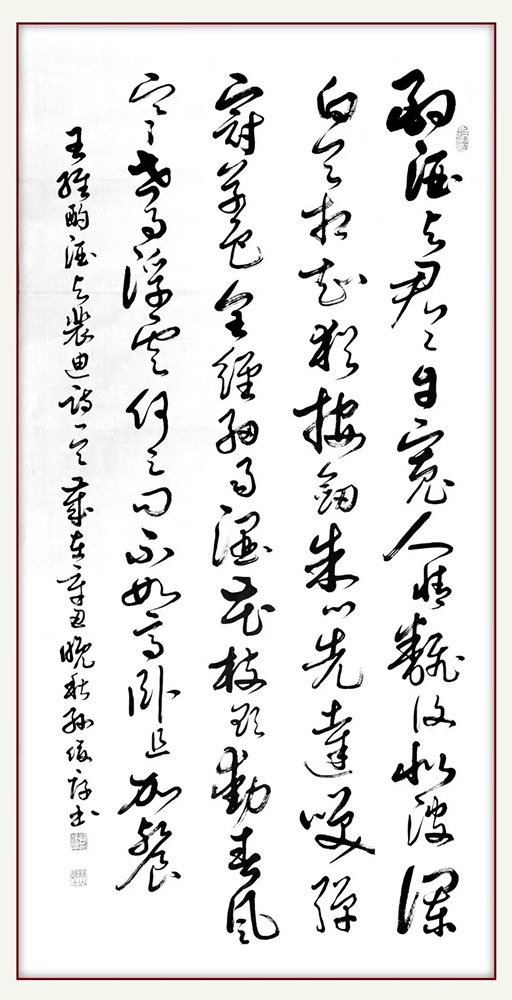 酌酒与君〻自寬人情飜覆似波瀾
白首相知猶按劍朱门先達咲彈
冠草色全經細雨濕花枝欲動春風
寒世事浮雲何足問不如高卧且加餐
王維酌酒与裴迪詩一首歲在辛丑晚秋孫俊书